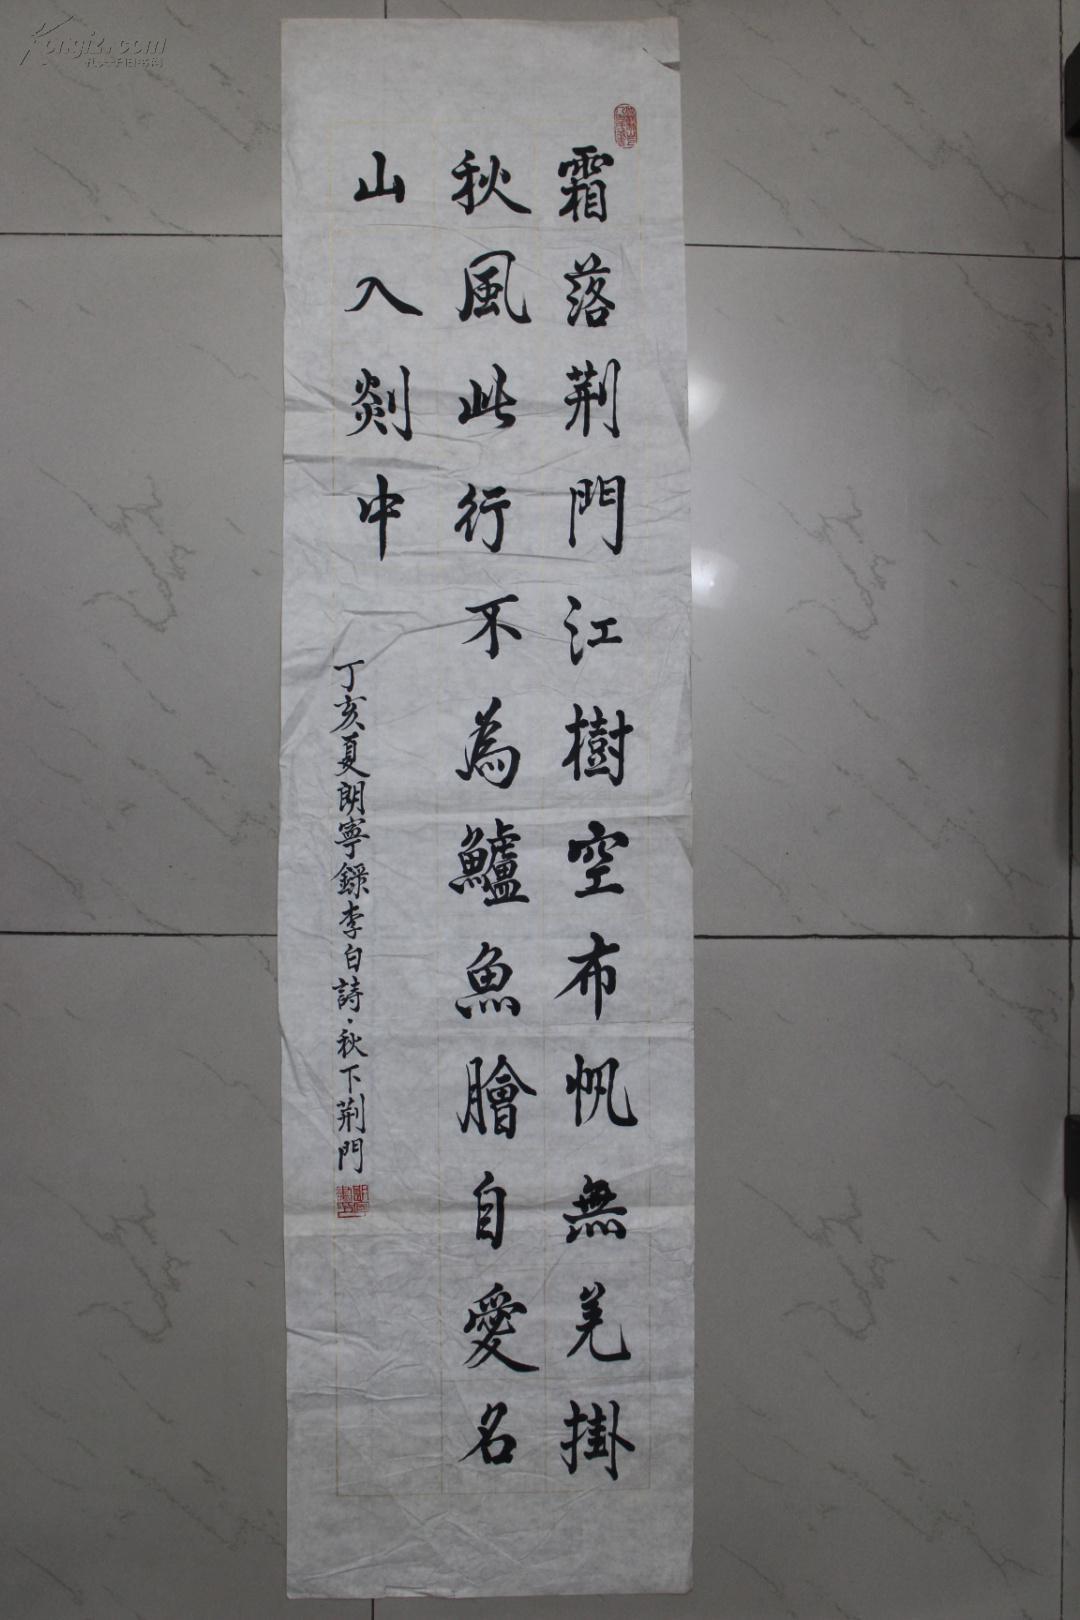 霜落荆門江樹空布帆無羌掛
秋風此行不為鱸魚膾自愛名
山入剡中
丁亥夏朗寧錄李白詩·秋下荆門
Kongfz.com
孔夫子旧书网